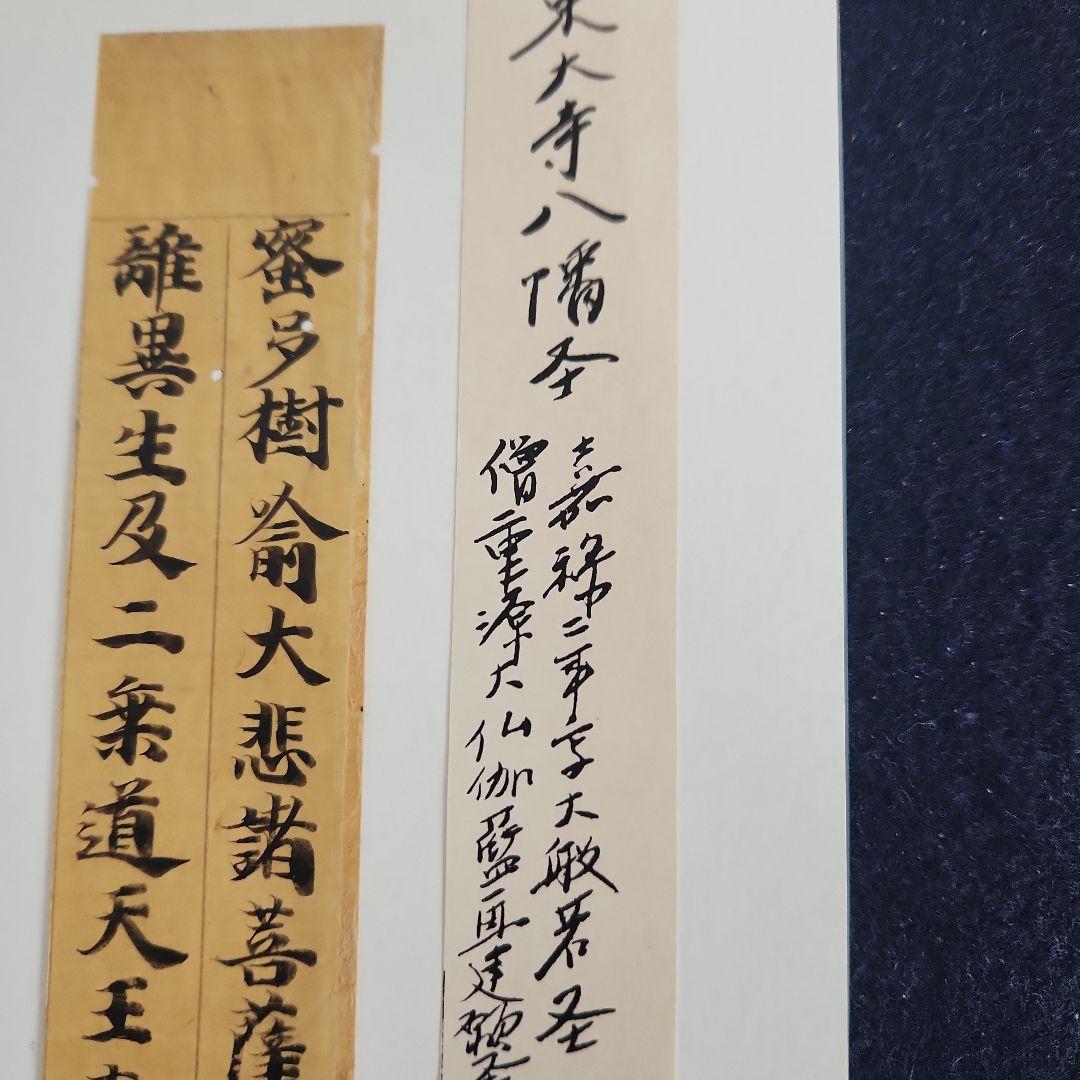 東大寺八幡圣
嘉禄二年写大般若圣
僧重源大仏伽藍再建願圣
蜜多樹俞大悲諸菩薩
離異生及二乗道天王